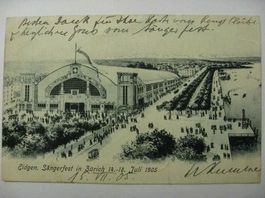 Besten Dank für Ihre Karte vom
& herzliche Gruss vom Sängerfest.
Eidgen. Sängerfest in Zürich 14.-18. Juli 1905
15. VII. 05.